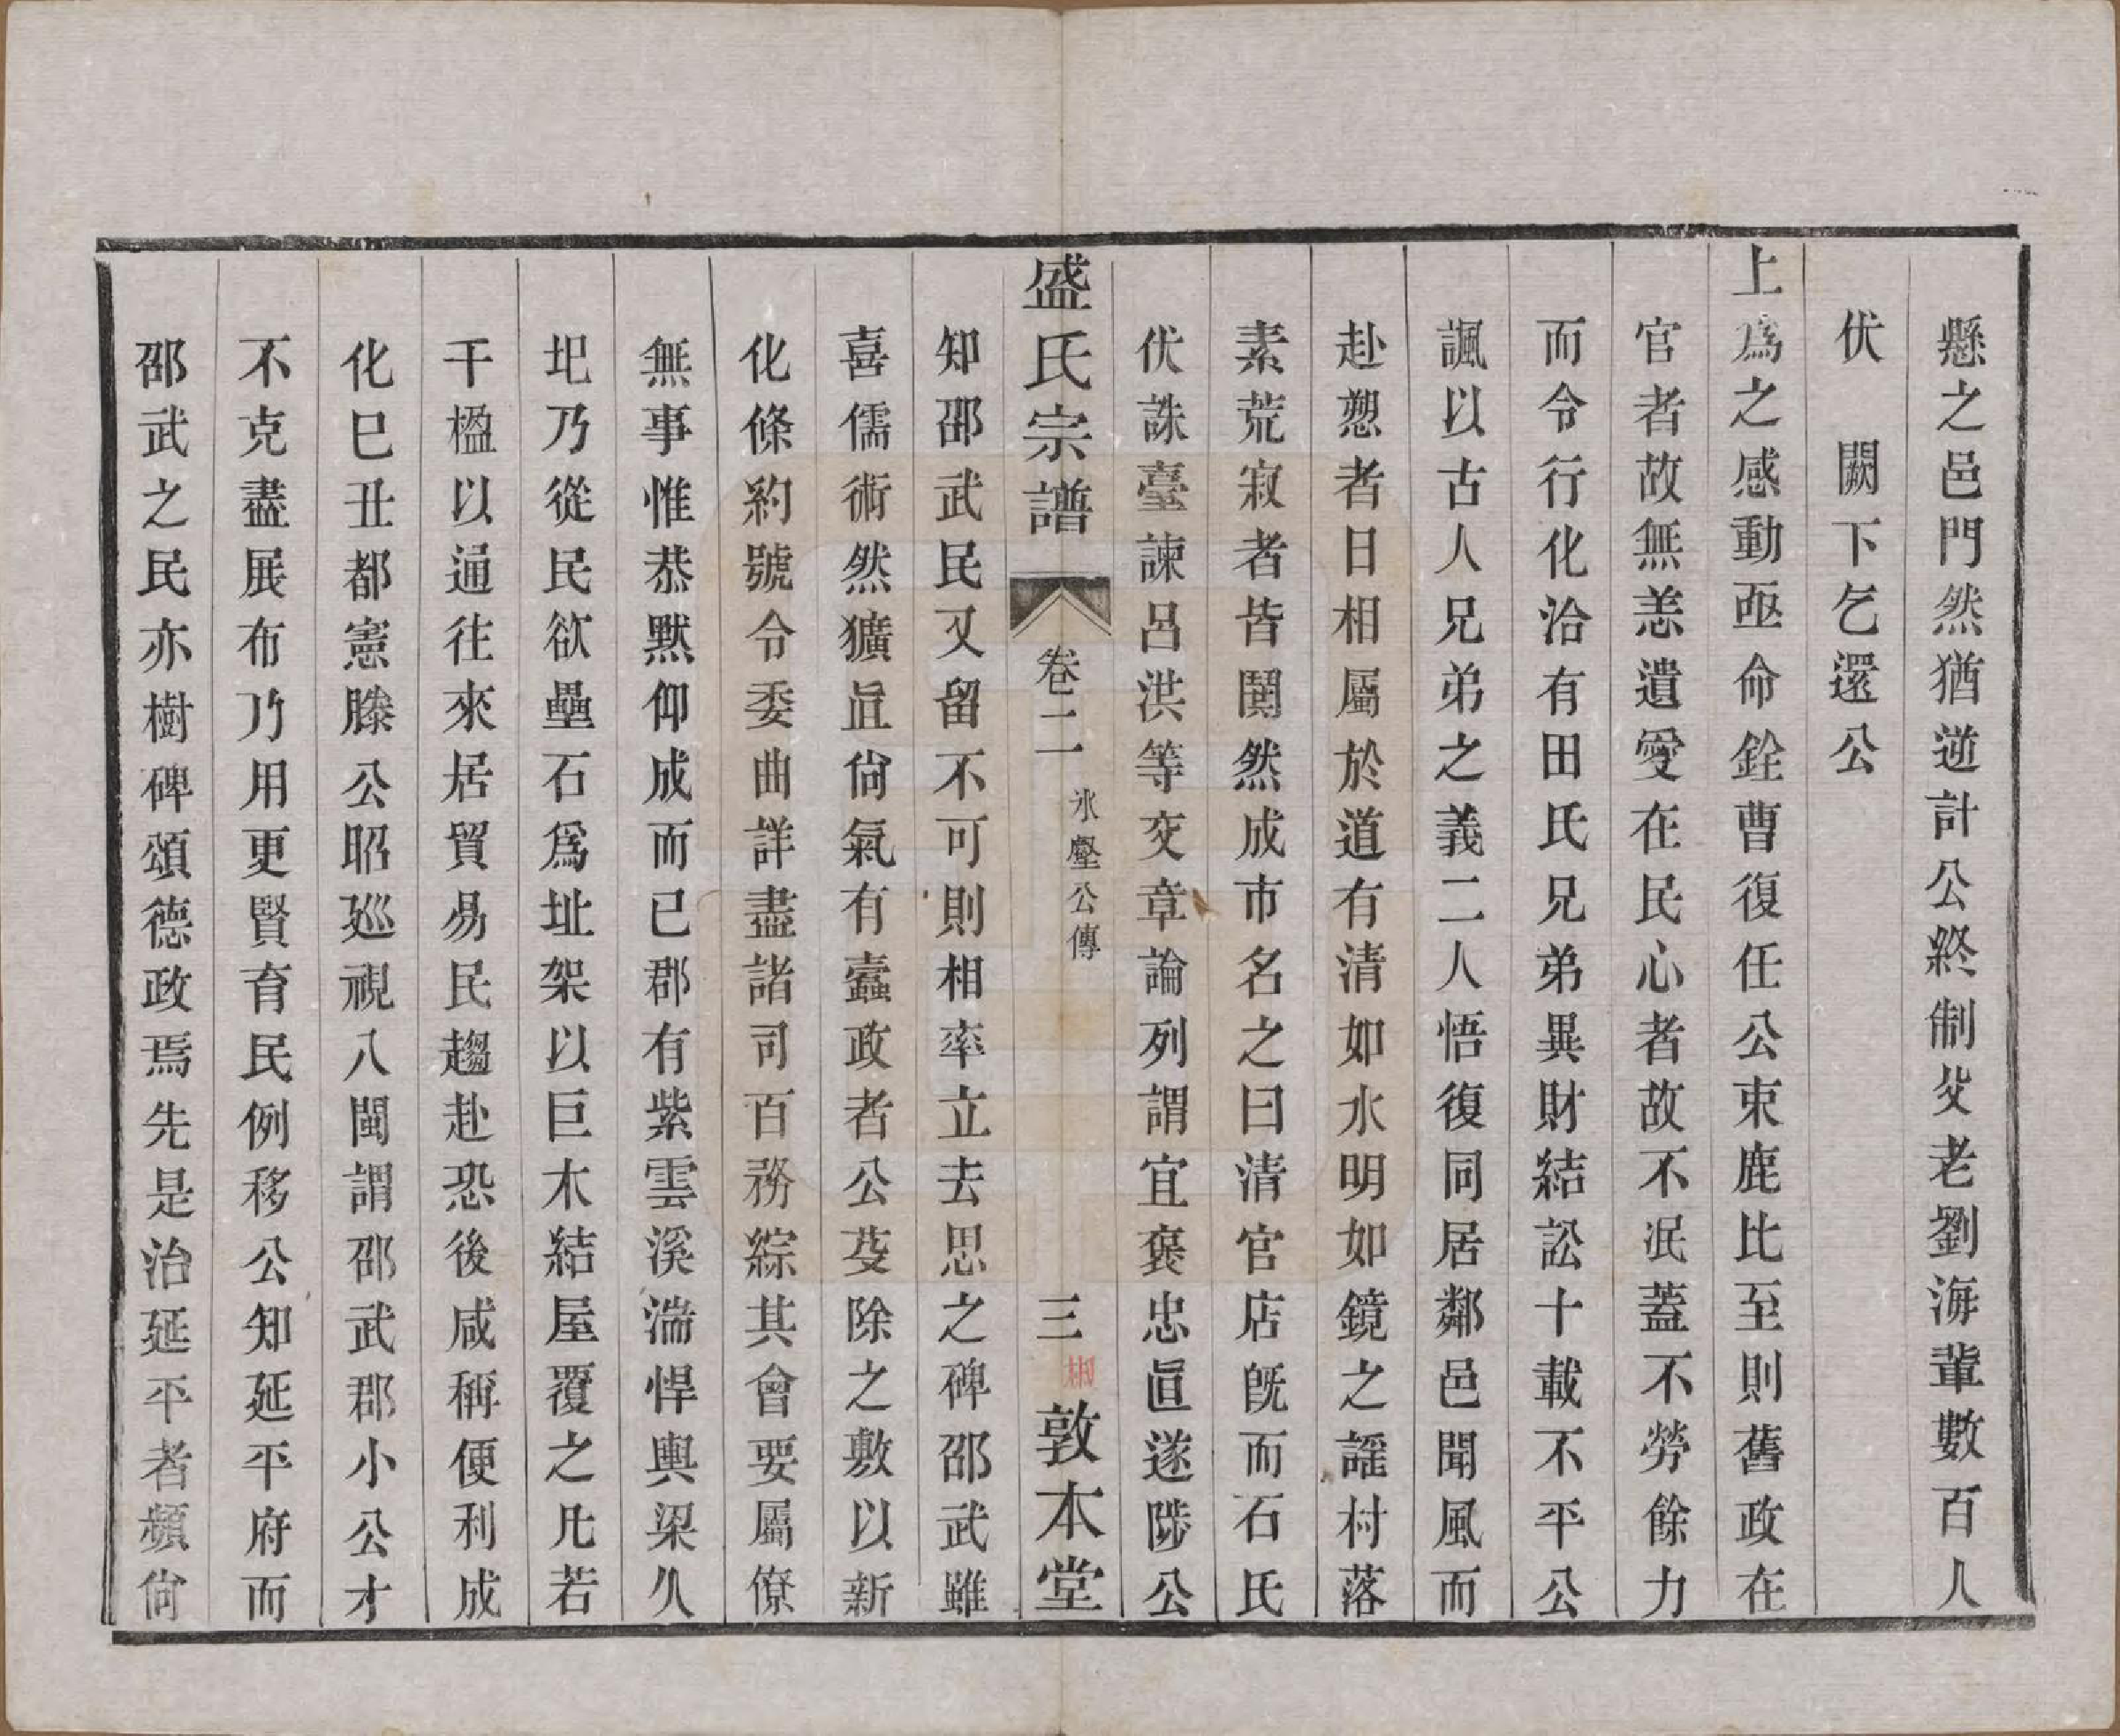 懸之邑門然猶逆計公終制父老劉海輩數百人
伏　闕下乞還公
上為之感動亟命銓曹復任公束鹿比至則舊政在
官者故無恙遺愛在民心者故不泯蓋不勞餘力
而令行化洽有田氏兄弟異財結訟十載不平公
諷以古人兄弟之義二人悟復同居鄰邑聞風而
赴愬者日相屬於道有清如水明如鏡之謠村落
素荒寂者皆鬨然成市名之曰清官店旣而石氏
伏誅臺諫呂洪等交章論列謂宜褒忠眞遂陟公
盛氏宗譜
卷二
氷壑公傳
三
敦本堂
知邵武民又留不可則相率立去思之碑邵武雖
喜儒術然獷眞尙氣有蠹政者公芟除之敷以新
化條約號令委曲詳盡諸司百務綜其會要屬僚
無事惟恭默仰成而已郡有紫雲溪湍悍輿梁久
圯乃從民欲壘石爲址架以巨木結屋覆之凡若
干楹以通往來居貿易民趨赴恐後咸稱便利成
化巳丑都憲滕公昭廵視八閩謂邵武郡小公才
不克盡展布乃用更賢育民例移公知延平府而
邵武之民亦樹碑頌德政焉先是治延平者頻尙